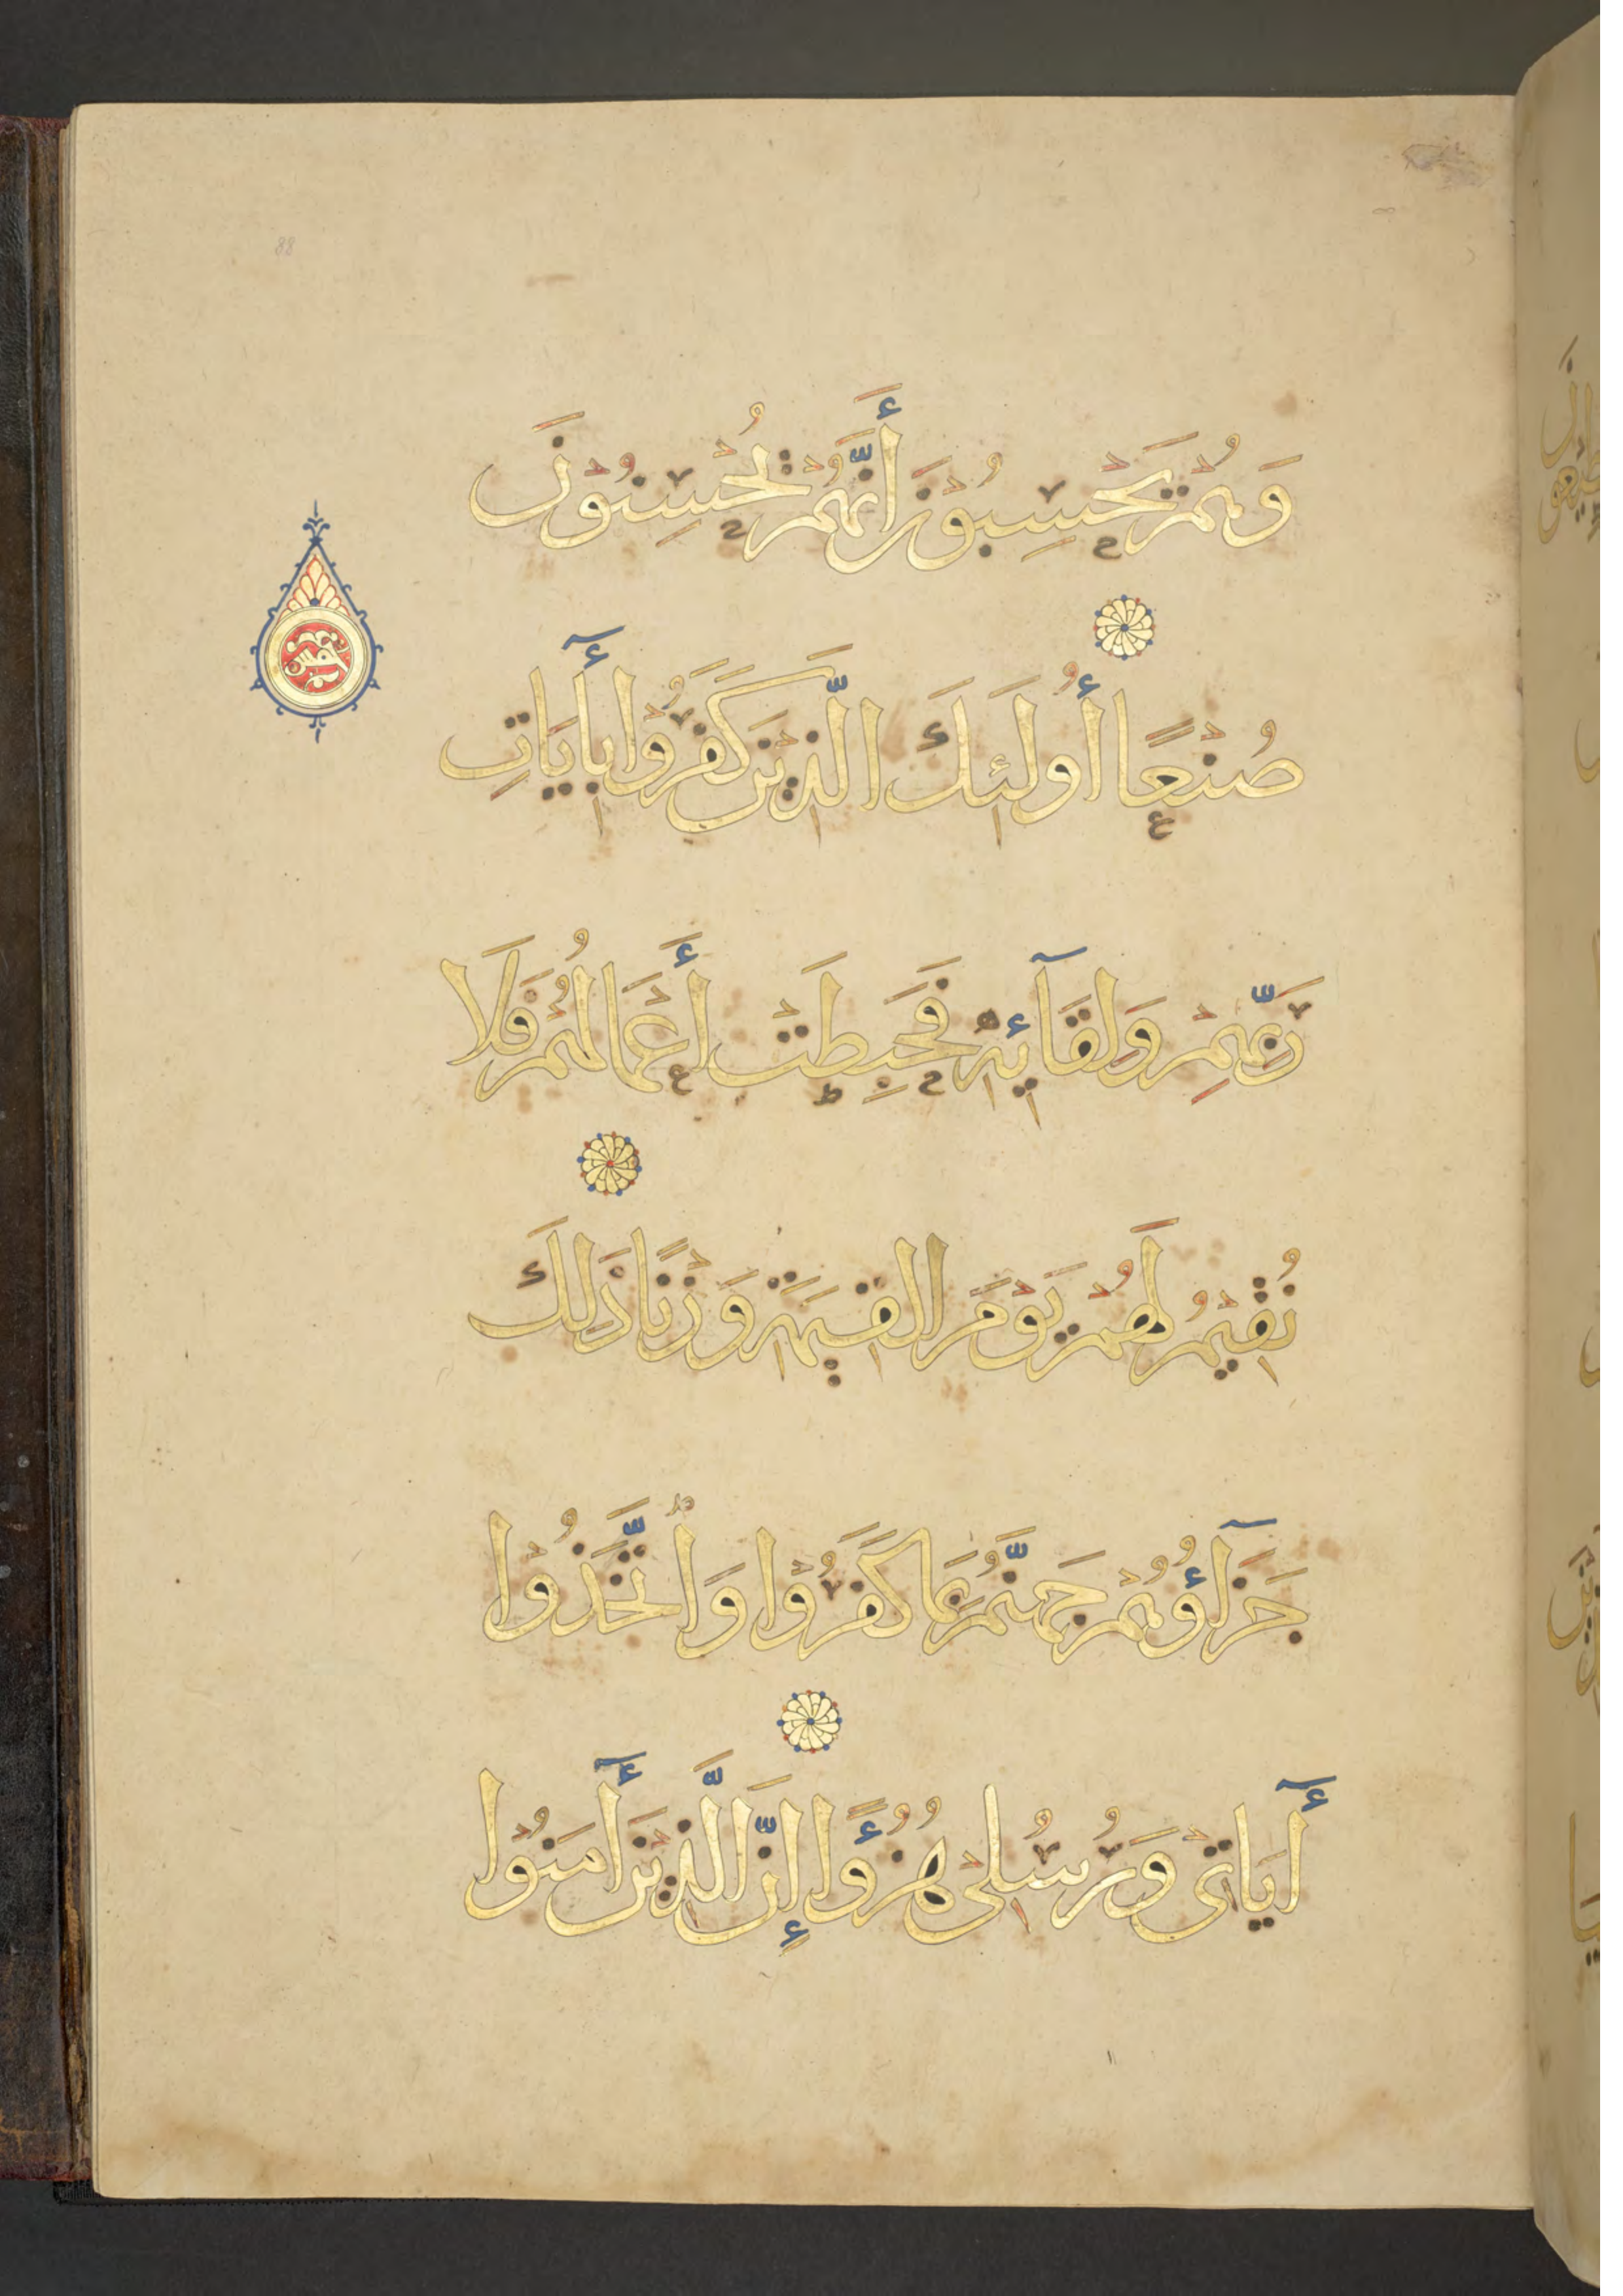 وَهُمْ يَحْسِبُوْنَ أَنَّهُمْ يُحْسِنُوْنَ
صُنْعًا أُولَئِكَ الَّذِيْنَ كَفَرُوْا بِأٓيَاتِ
رَبِّهِمْ وَلِقَآئِهِ فَحَبِطَتْ أَعْمَالُهُمْ فَلَا
نُقِيْمُ لَهُمْ يَوْمَ الْقِيَمَةِ وَزْنًا ذَلِكَ
جَزَآؤُهُمْ جَهَنَّمُ بِمَا كَفَرُوْا وَاتَّخَذُوْا
أٓيَاتِى وَرُسُلِى هُزُؤًا إِنَّ الَّذِيْنَ أٓمَنُوْا
88